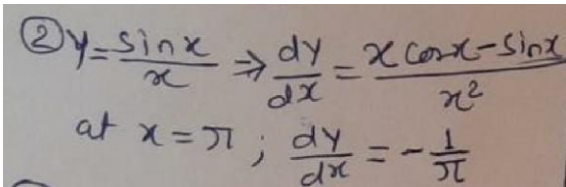 ② y = sinx/x ⇒ dy/dx = (x cosx - sinx)/x²
at x = π ; dy/dx = -1/π